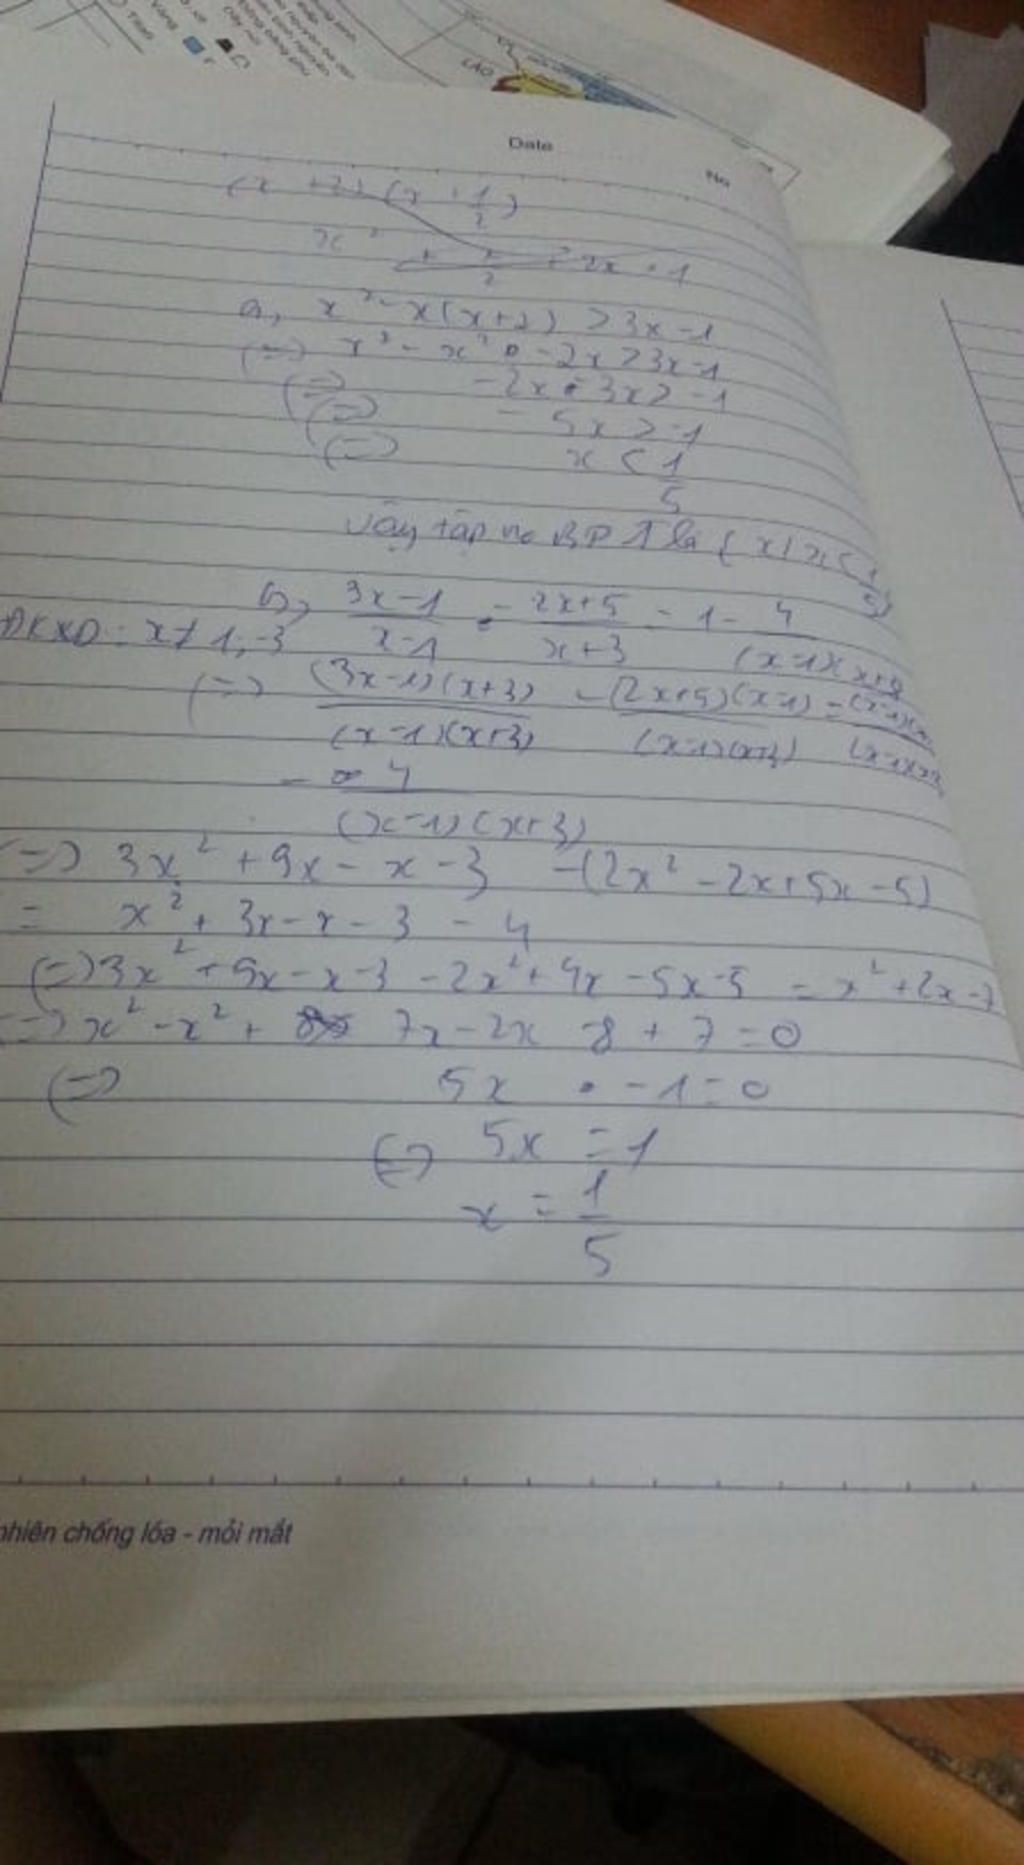 LÀO
Date
No
(x + 2) (x + 1/2)
x² + x/2 + 2x + 1
a, x² - x(x+2) > 3x-1
(=) x² - x² - 2x > 3x-1
(=) -2x - 3x > -1
(=) - 5x > -1
(=) x < 1/5
Vậy tập no BPT là { x | x < 1/5 }
b, 3x-1/x-1 - 2x+5/x+3 = 1 - 4/(x-1)(x+3)
ĐKXĐ: x ≠ 1, -3
(=) (3x-1)(x+3)/(x-1)(x+3) - (2x+5)(x-1)/(x-1)(x+3) =
- 4/(x-1)(x+3)
(=) 3x² + 9x - x - 3 - (2x² - 2x + 5x - 5)
= x² + 3x - x - 3 - 4
(=) 3x² + 9x - x - 3 - 2x² + 4x - 5x - 5 = x² + 2x - 7
(=) x² - x² + 7x - 2x - 8 + 7 = 0
(=) 5x - 1 = 0
(=) 5x = 1
x = 1/5
nhiên chống lóa - mỏi mắt